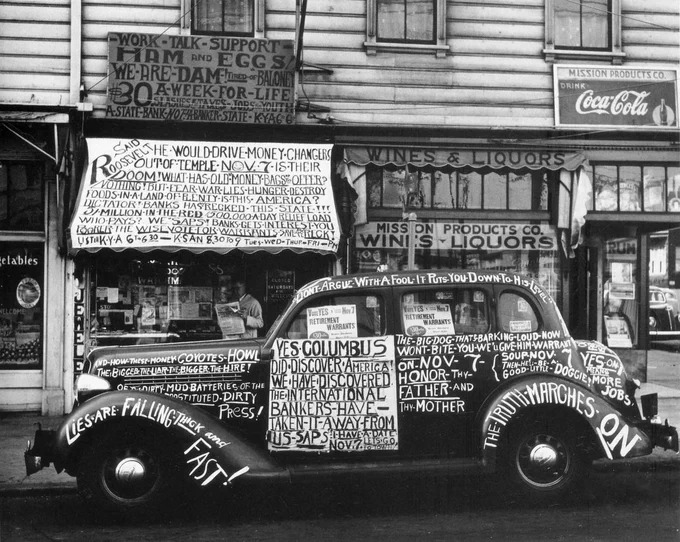 WORK-TALK-SUPPORT
HAM AND EGGS!
WE-ARE-DAM-TIRED-OF BALONEY
$30 A-WEEK-FOR-LIFE
SLASHES-TAXES-JOBS-YOUTH
A-STATE-BANK-NOT-A-BANKER-STATE-
MISSION PRODUCTS CO.
DRINK
Coca-Cola
SAID
ROOSEVELT HE-WOULD-DRIVE-MONEY-CHANGERS
OUT-OF-TEMPLE-NOV.7-IS-THEIR
DOOM! WHAT-HAS-OLD-MONEY-BAGS-TO-OFFER?
NOTHING! BUT-FEAR-WAR-LIES-HUNGER-DESTROY
FOODS-IN-A-LAND-OF-PLENTY-IS-THIS-AMERICA?
DICTATOR-BANKS HAS-ROCKED-THIS-STATE-!!!
MILLION-IN-THE-RED 300,000-A-DAY RELIEF LOAD
WHO-PAYS? WE "SAPS! BANKS-GETS-INTEREST
BE-THE-WISE-VOTE-FOR WARRANTS-
K-Y-A 6:15-6:30 - K SAN 8:30 TO 9 TUES-WED-THUR-FRI-P.M.
WINES & LIQUORS
MISSION PRODUCTS CO.
WINES - LIQUORS
etables
DON'T-ARGUE-WITH A FOOL-IT PUTS-YOU DOWN-TO-HIS LEVEL
Vote YES Nov 7
RETIREMENT
WARRANTS
Vote YES Nov 7
RETIREMENT
WARRANTS
AND-HOW-THESE-MONEY COYOTES-HOWL
THE-BIGGER-THE-LIAR-THE-BIGGER-THE-HIRE!
OF-THE-DIRTY-MUD BATTERIES-OF THE
PROSTITUTED-DIRTY
PRESS!
LIES-ARE-FALLING-THICK and
FAST!
YES COLUMBUS
DID-DISCOVER-AMERICA!
WE-HAVE-DISCOVERED
THE-INTERNATIONAL
BANKERS-HAVE-
TAKEN-IT-AWAY-FROM
US-SAPS-I-HAVE-A-DATE
NOV.7 LETS-GO
THE-BIG-DOG-THAT'S-BARKING-LOUD-NOW
WON'T-BITE-YOU-WE'LL-GIVE-HIM WARRANT
ON-NOV-7- SOUP NOV. 7
HONOR-THY- THEN-HE'LL-BE-A
FATHER-AND GOOD-LITTLE-DOGGIE
THY-MOTHER
YES-ON
7
MORE
JOBS
THE-TRUTH-MARCHES-ON